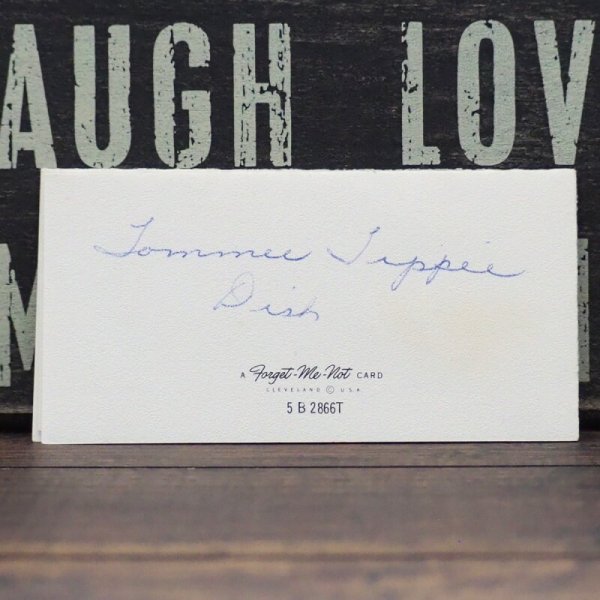 AUGH LOV
M
Tommee Tippee
Dish
A Forget-Me-Not CARD
CLEVELAND © U.S.A.
5 B 2866T